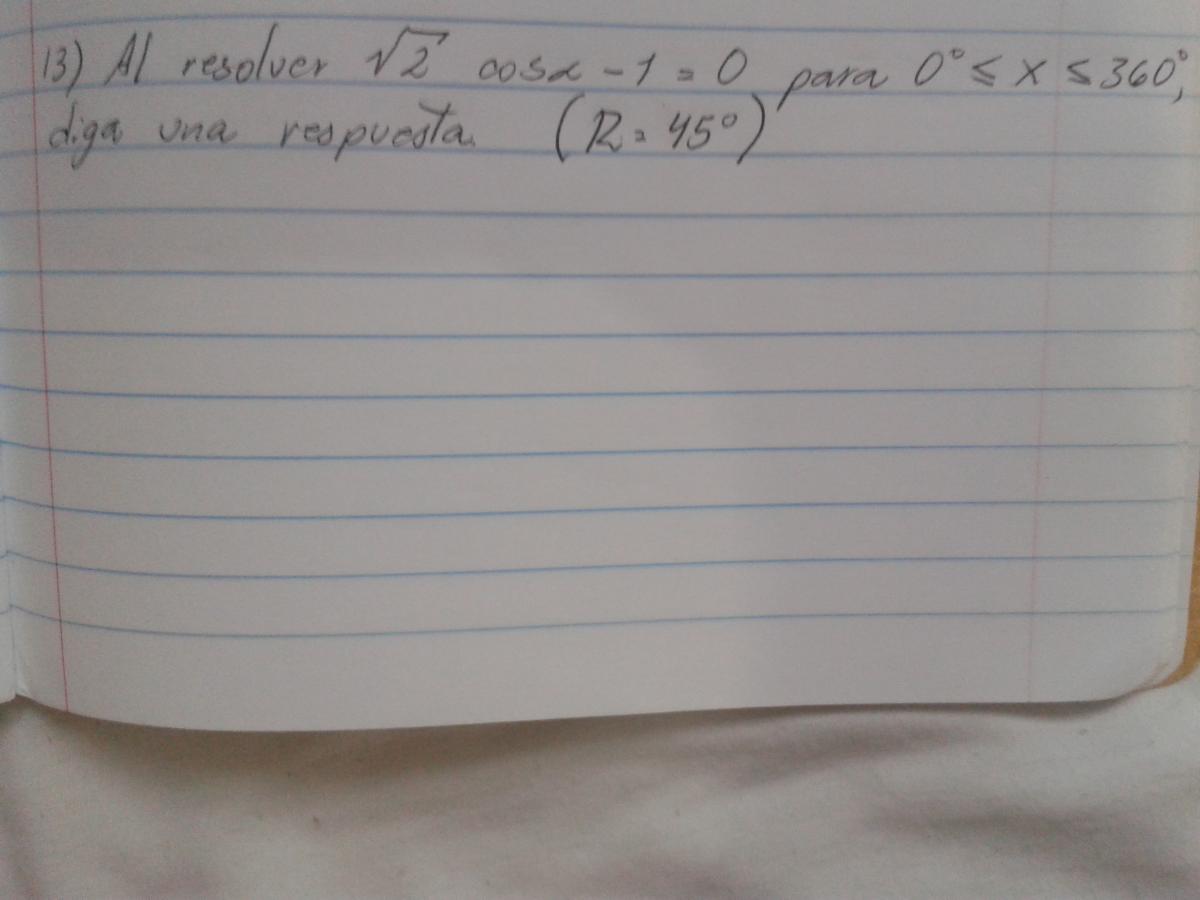 13) Al resolver √2 cosx - 1 = 0 para 0° ≤ x ≤ 360°,
diga una respuesta. (R = 45°)